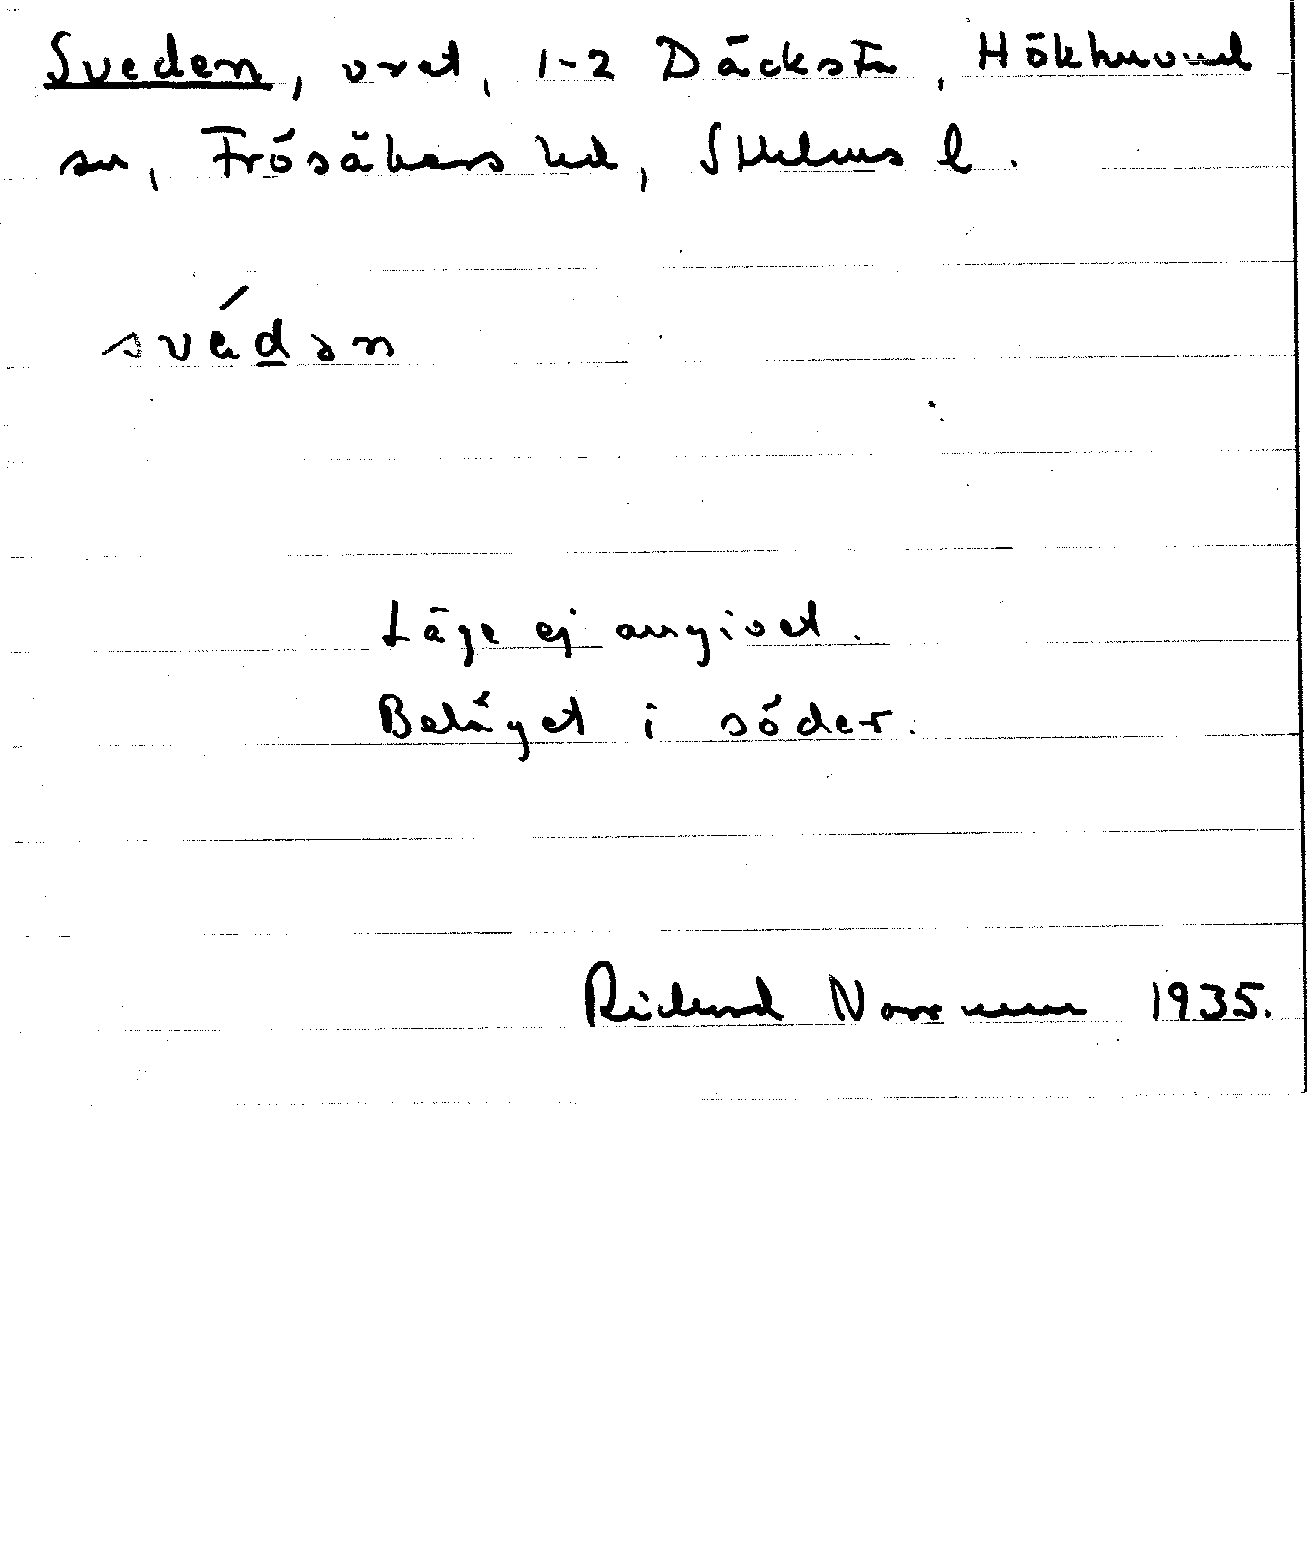 Sveden, vret, 1-2 Däcksta, Hökhuvud
sn, Frösåkers hd, Sthlms l.
svédən
Läge ej angivet.
Beläget i söder.
Richard Norrman 1935.